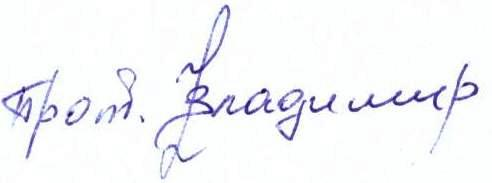 Прот. Владимир